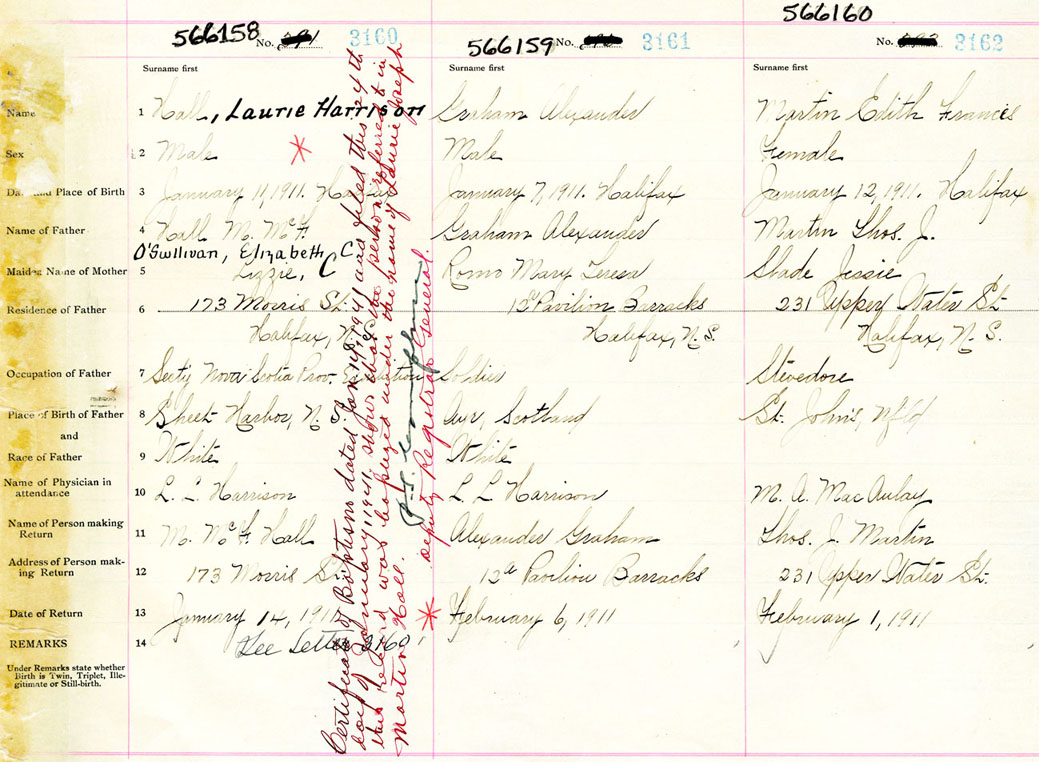 566160
566158 No. 3160
566159 No. 3161
No. 3162
Surname first
Surname first
Surname first
Name 1 Hall, Laurie Harrison
Graham Alexander
Martin Edith Frances
Sex 2 Male *
Male
Female
Place of Birth 3 January 11, 1911. Halifax
January 7, 1911. Halifax
January 12, 1911. Halifax
Name of Father 4 Hall M. McF
Graham Alexander
Martin Thos. J.
O'Sullivan, Elizabeth C
Maiden Name of Mother 5 Lizzie, C
Romo Mary Teresa
Slade Jessie
Residence of Father 6 173 Morris St.
12 Pavilion Barracks
231 Upper Water St.
Halifax, N.S.
Halifax, N.S.
Halifax, N.S.
Occupation of Father 7 Secty Nova Scotia Prov. Exhibition
Soldier
Stevedore
Place of Birth of Father 8 Sheet Harbor, N.S.
Ayr, Scotland
St. John's, Nfld
and
Race of Father 9 White
White
Name of Physician in
attendance 10 L. L. Harrison
L L Harrison
M. A. MacAulay
Name of Person making
Return 11 M. McF Hall
Alexander Graham
Thos. J. Martin
Address of Person mak-
ing Return 12 173 Morris St.
12a Pavilion Barracks
231 Upper Water St.
Date of Return 13 January 14, 1911
February 6, 1911
February 1, 1911
REMARKS 14 See Letter 3160
Under Remarks state whether
Birth is Twin, Triplet, Ille-
gitimate or Still-birth.
* Certificate of Baptism dated Jan 18, 1941 and filed this 24th
day of January 1941, shows that the person referred to in
this record was baptized under the name of Laurie Joseph
Martin Hall.
Deputy Registrar General.